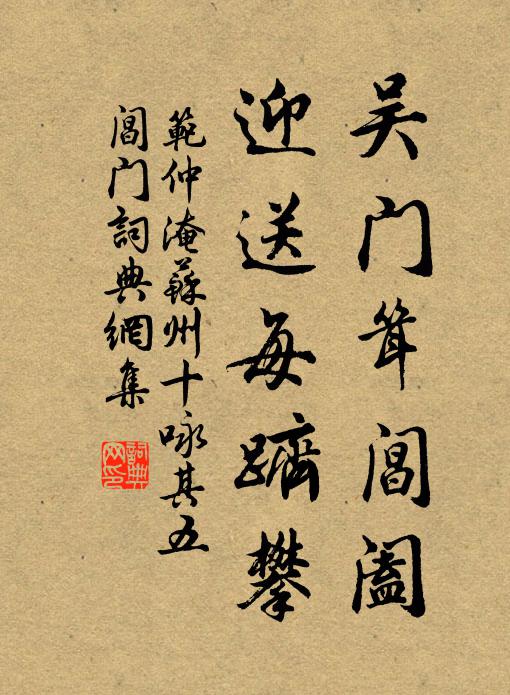 吴门耸阊阖
迎送每跻攀
範仲淹蘇州十咏其五
阊门詞典網集
詞典网印